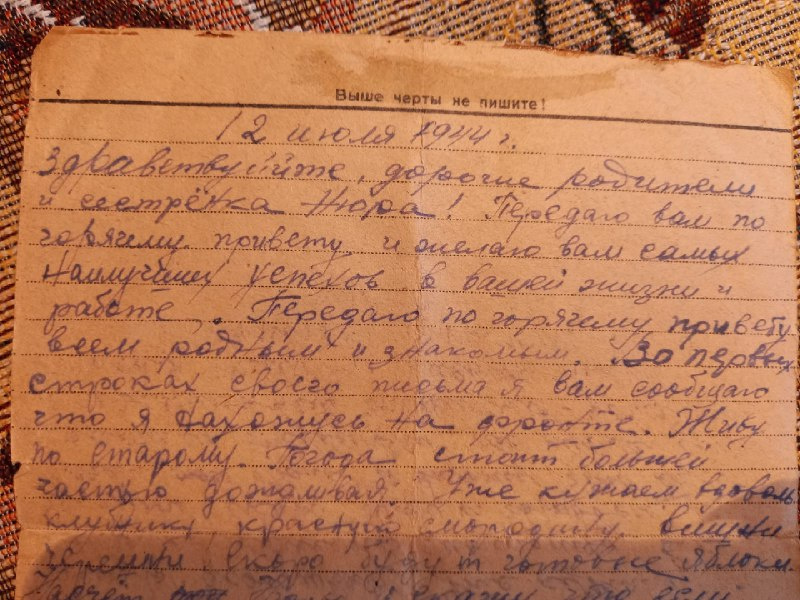 Выше черты не пишите!
12 июля 1944 г.
Здравствуйте, дорогие родители
и сестрёнка Нюра! Передаю вам по
горячему привету и желаю вам самых
наилучших успехов в вашей жизни и
работе. Передаю по горячему привету
всем родным и знакомым. Во первых
строках своего письма я вам сообщаю
что я нахожусь на фронте. Живу
по старому. Погода стоит большей
частью дождливая. Уже кушаем вдоволь
клубнику красную смородину. Вишни
черешни скоро будут готовые яблоки